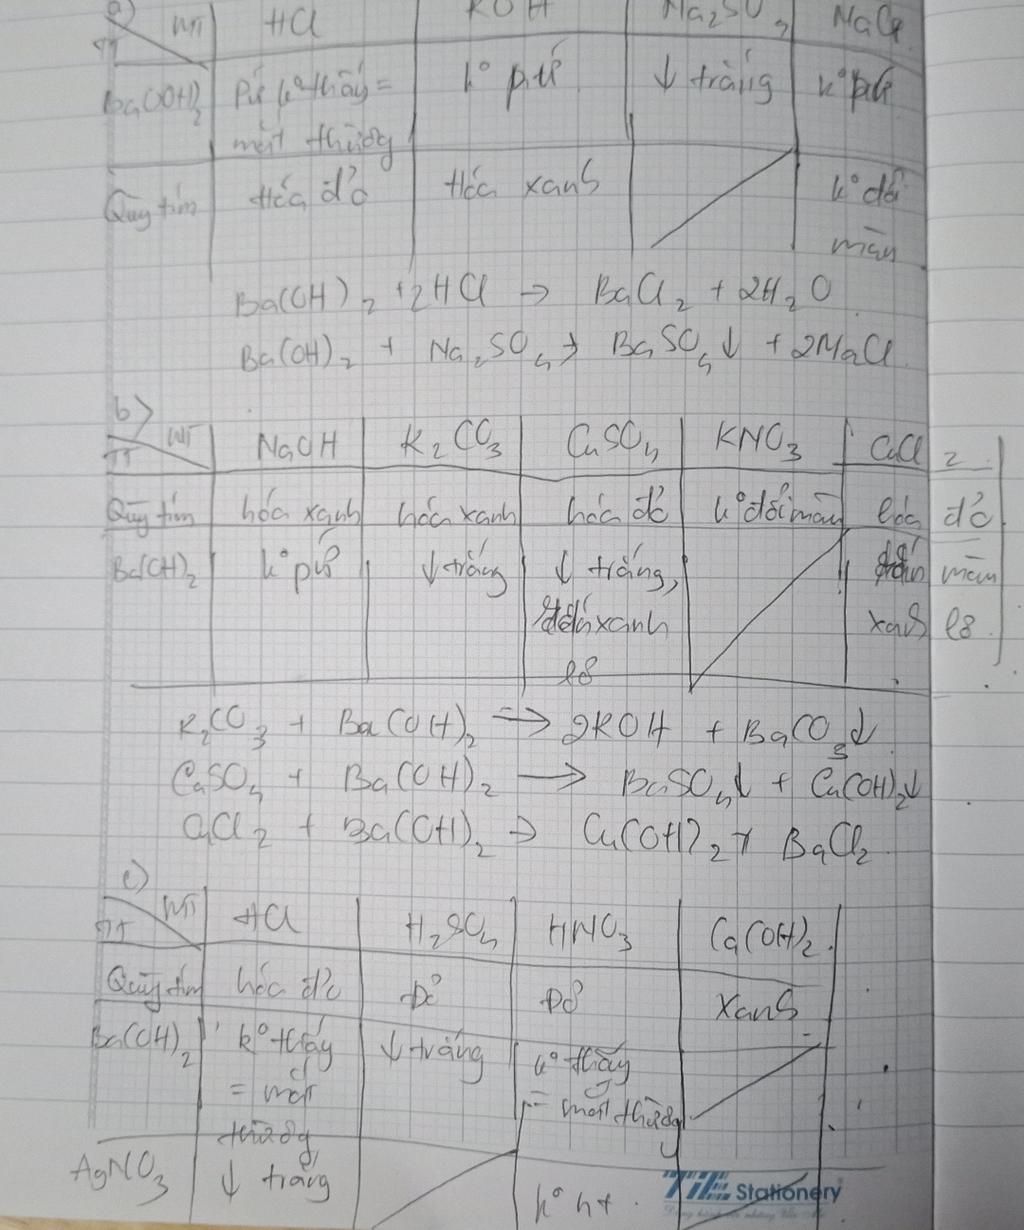 a)
MT HCl KOH Na₂SO₄ NaCl
TT
Ba(OH)₂ Pứ k° thấy = k° pứ ↓ trắng k° pứ
mắt thường
Quỳ tím Hóa đỏ Hóa xanh k° đổi
màu
Ba(OH)₂ + 2HCl → BaCl₂ + 2H₂O
Ba(OH)₂ + Na₂SO₄ → BaSO₄↓ + 2NaCl
b)
MT NaOH K₂CO₃ CuSO₄ KNO₃ CuCl₂
TT
Quỳ tím hóa xanh hóa xanh hóa đỏ k° đổi màu hóa đỏ
Ba(OH)₂ k° pứ ↓ trắng ↓ trắng, màu
xanh xanh lơ
lơ
K₂CO₃ + Ba(OH)₂ → 2KOH + BaCO₃↓
CuSO₄ + Ba(OH)₂ → BaSO₄↓ + Cu(OH)₂↓
CuCl₂ + Ba(OH)₂ → Cu(OH)₂ + BaCl₂
c)
MT HCl H₂SO₄ HNO₃ Ca(OH)₂
TT
Quỳ tím hóa đỏ Đỏ Đỏ Xanh
Ba(OH)₂ k° thấy ↓ trắng k° thấy
= mắt = mắt thường
thường
AgNO₃ ↓ trắng k° ht
TTL Stationery